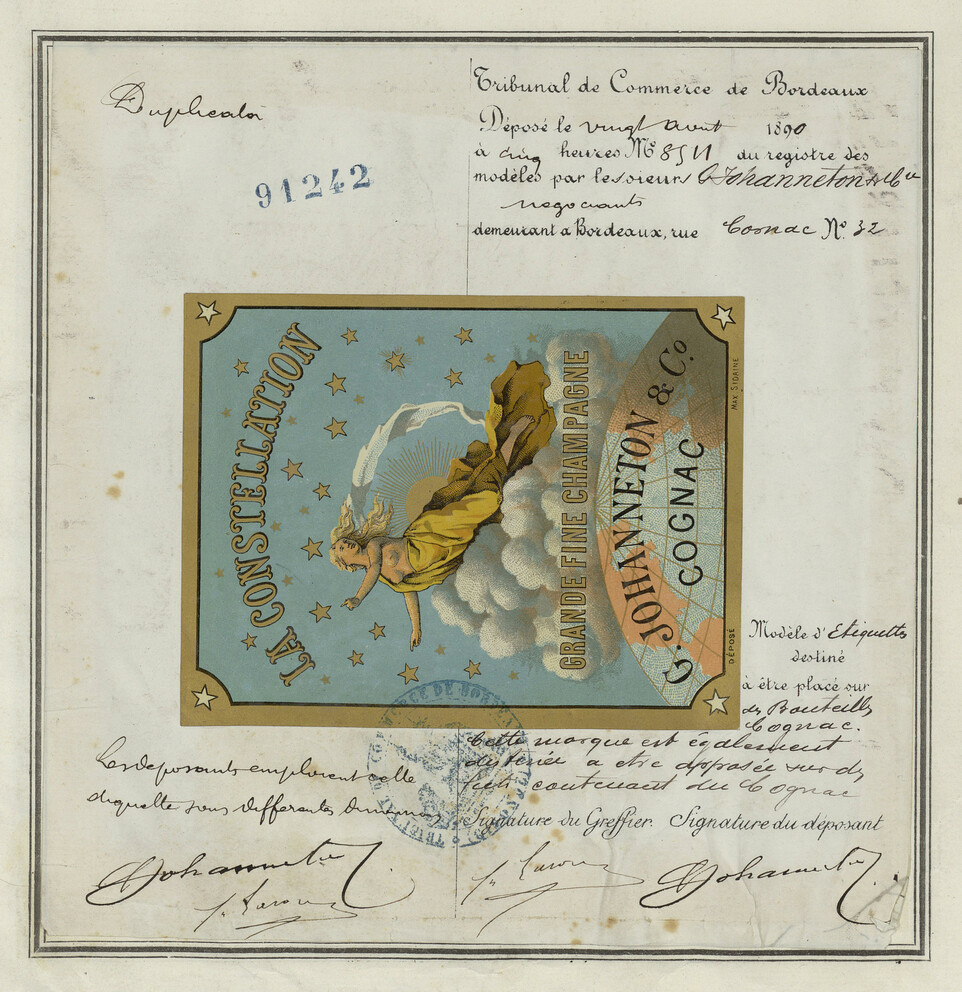 Duplicata
91242
Tribunal de Commerce de Bordeaux
Déposé le vingt Août 1890
à cinq heures No 8511 du registre des
modèles par les sieurs C. Johanneton & Cie
négociants
demeurant à Bordeaux, rue Cornac No. 32
LA CONSTELLATION
GRANDE FINE CHAMPAGNE
C. JOHANNETON & Co.
COGNAC
MAX SIDAINE
DÉPOSÉ
Modèle d'Etiquettes
destiné
à être placé sur
des Bouteilles
Cognac.
Cette marque est également
destinée a etre apposée sur des
futs contenant du Cognac
Les deposants emploient cette
étiquette sous differentes dimensions
Signature du Greffier. Signature du déposant
C Johanneton
C Johanneton